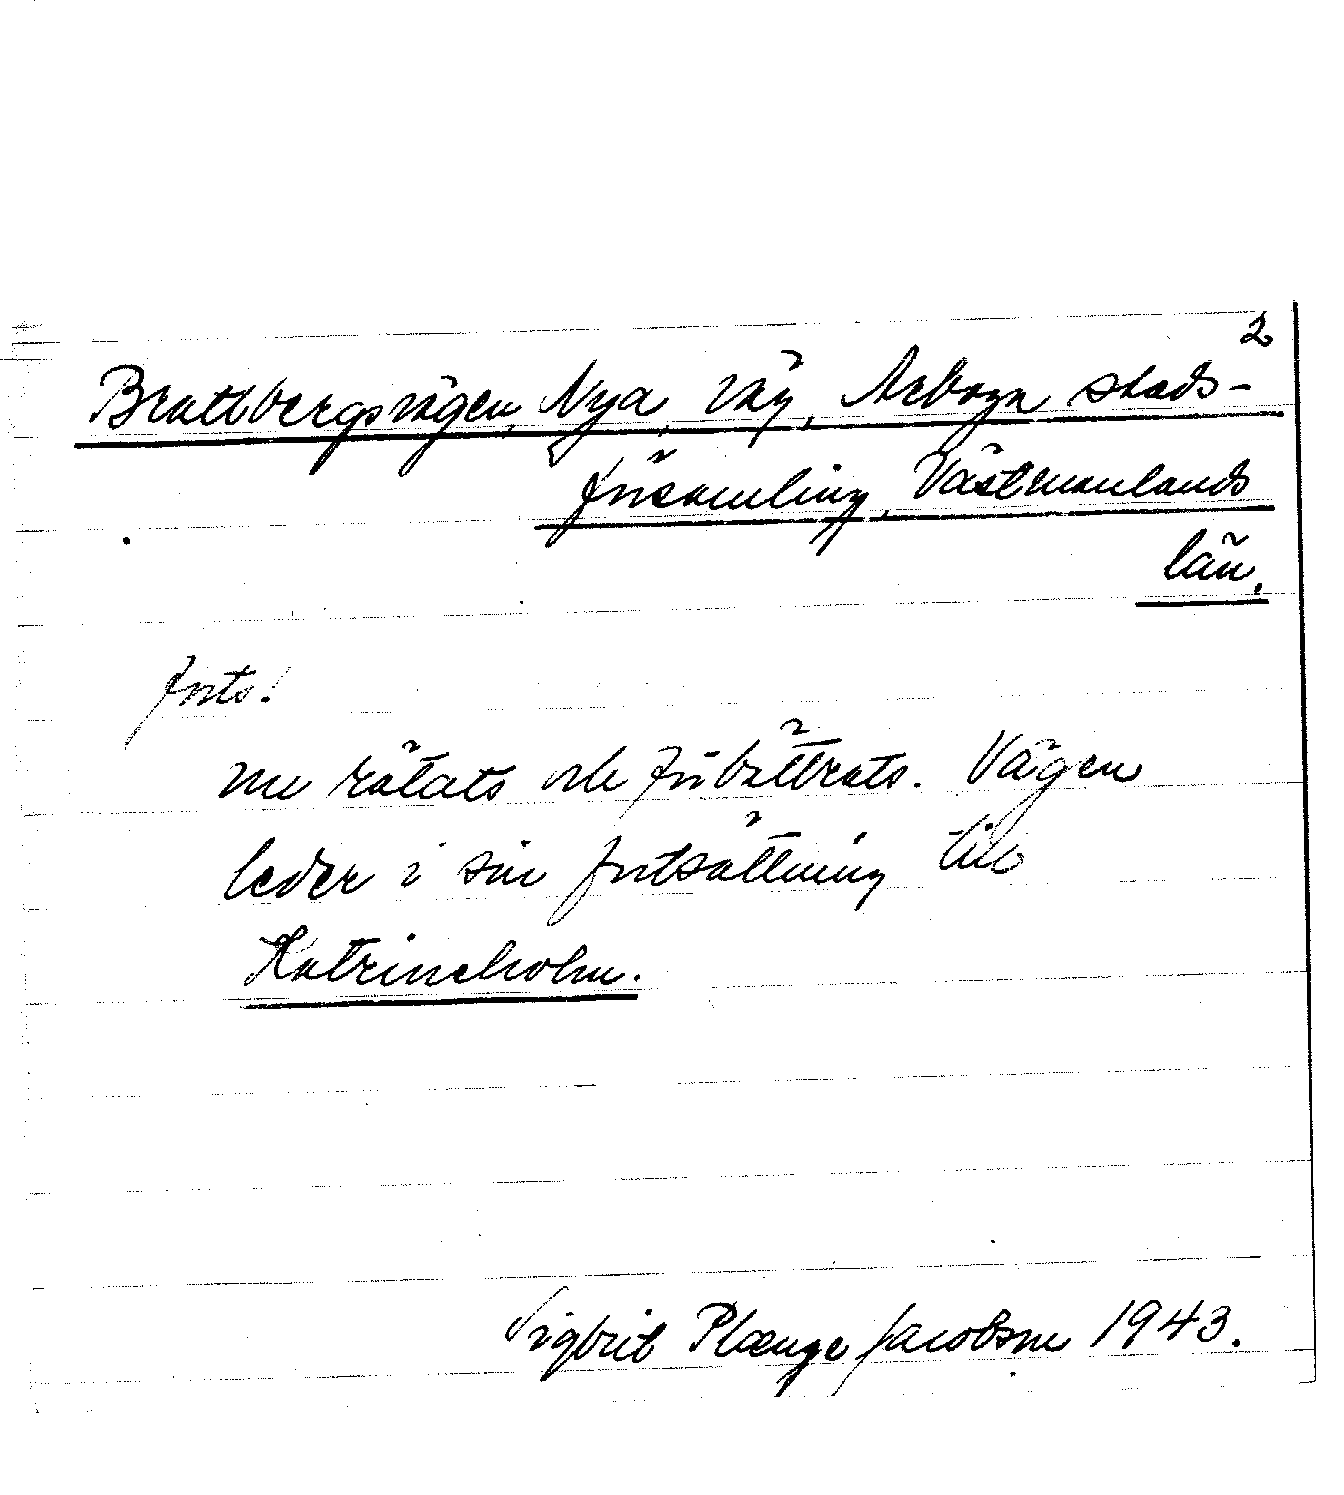 2
Brattbergsvägen, Nya, väg, Arboga stads-
församling, Västmanlands
län.
forts!
nu rätats och förbättrats. Vägen
leder i sin fortsättning till
Katrineholm.
Sigfrid Plænge Jacobson 1943.